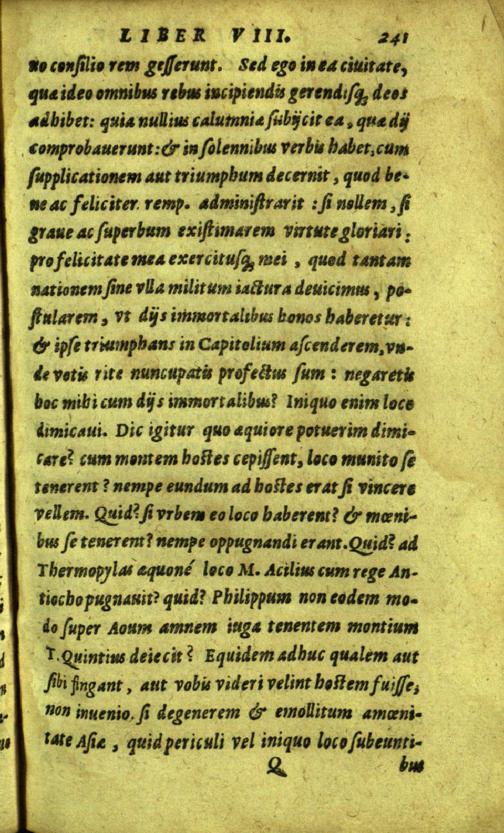 LIBER VIII. 241
no consilio rem gesserunt. Sed ego in ea ciuitate,
quæ ideo omnibus rebus incipiendis gerendisq́; deos
adhibet: quia nullius calumniæ subijcit ea, quæ dij
comprobauerunt: & in solennibus verbis habet, cum
supplicationem aut triumphum decernit, quod be-
ne ac feliciter remp. administrarit: si nollem, si
graue ac superbum existimarem virtute gloriari:
pro felicitate mea exercitusq́; mei, quod tantam
nationem sine vlla militum iactura deuicimus, po-
stularem, vt dijs immortalibus honos haberetur:
& ipse triumphans in Capitolium ascenderem, vn-
de votis rite nuncupatis profectus sum: negaretis
hoc mihi cum dijs immortalibus? Iniquo enim loco
dimicaui. Dic igitur quo æquiore potuerim dimi-
care? cum montem hostes cepissent, loco munito se
tenerent? nempe eundum ad hostes erat si vincere
vellem. Quid? si vrbem eo loco haberent? & mœni-
bus se tenerent? nempe oppugnandi erant. Quid? ad
Thermopylas æquoné loco M. Acilius cum rege An-
tiocho pugnauit? quid? Philippum non eodem mo-
do super Aoum amnem iuga tenentem montium
T. Quintius deiecit? Equidem adhuc qualem aut
sibi fingant, aut vobis videri velint hostem fuisse,
non inuenio. si degenerem & emollitum amœni-
tate Asiæ, quid periculi vel iniquo loco subeunti-
Q bus